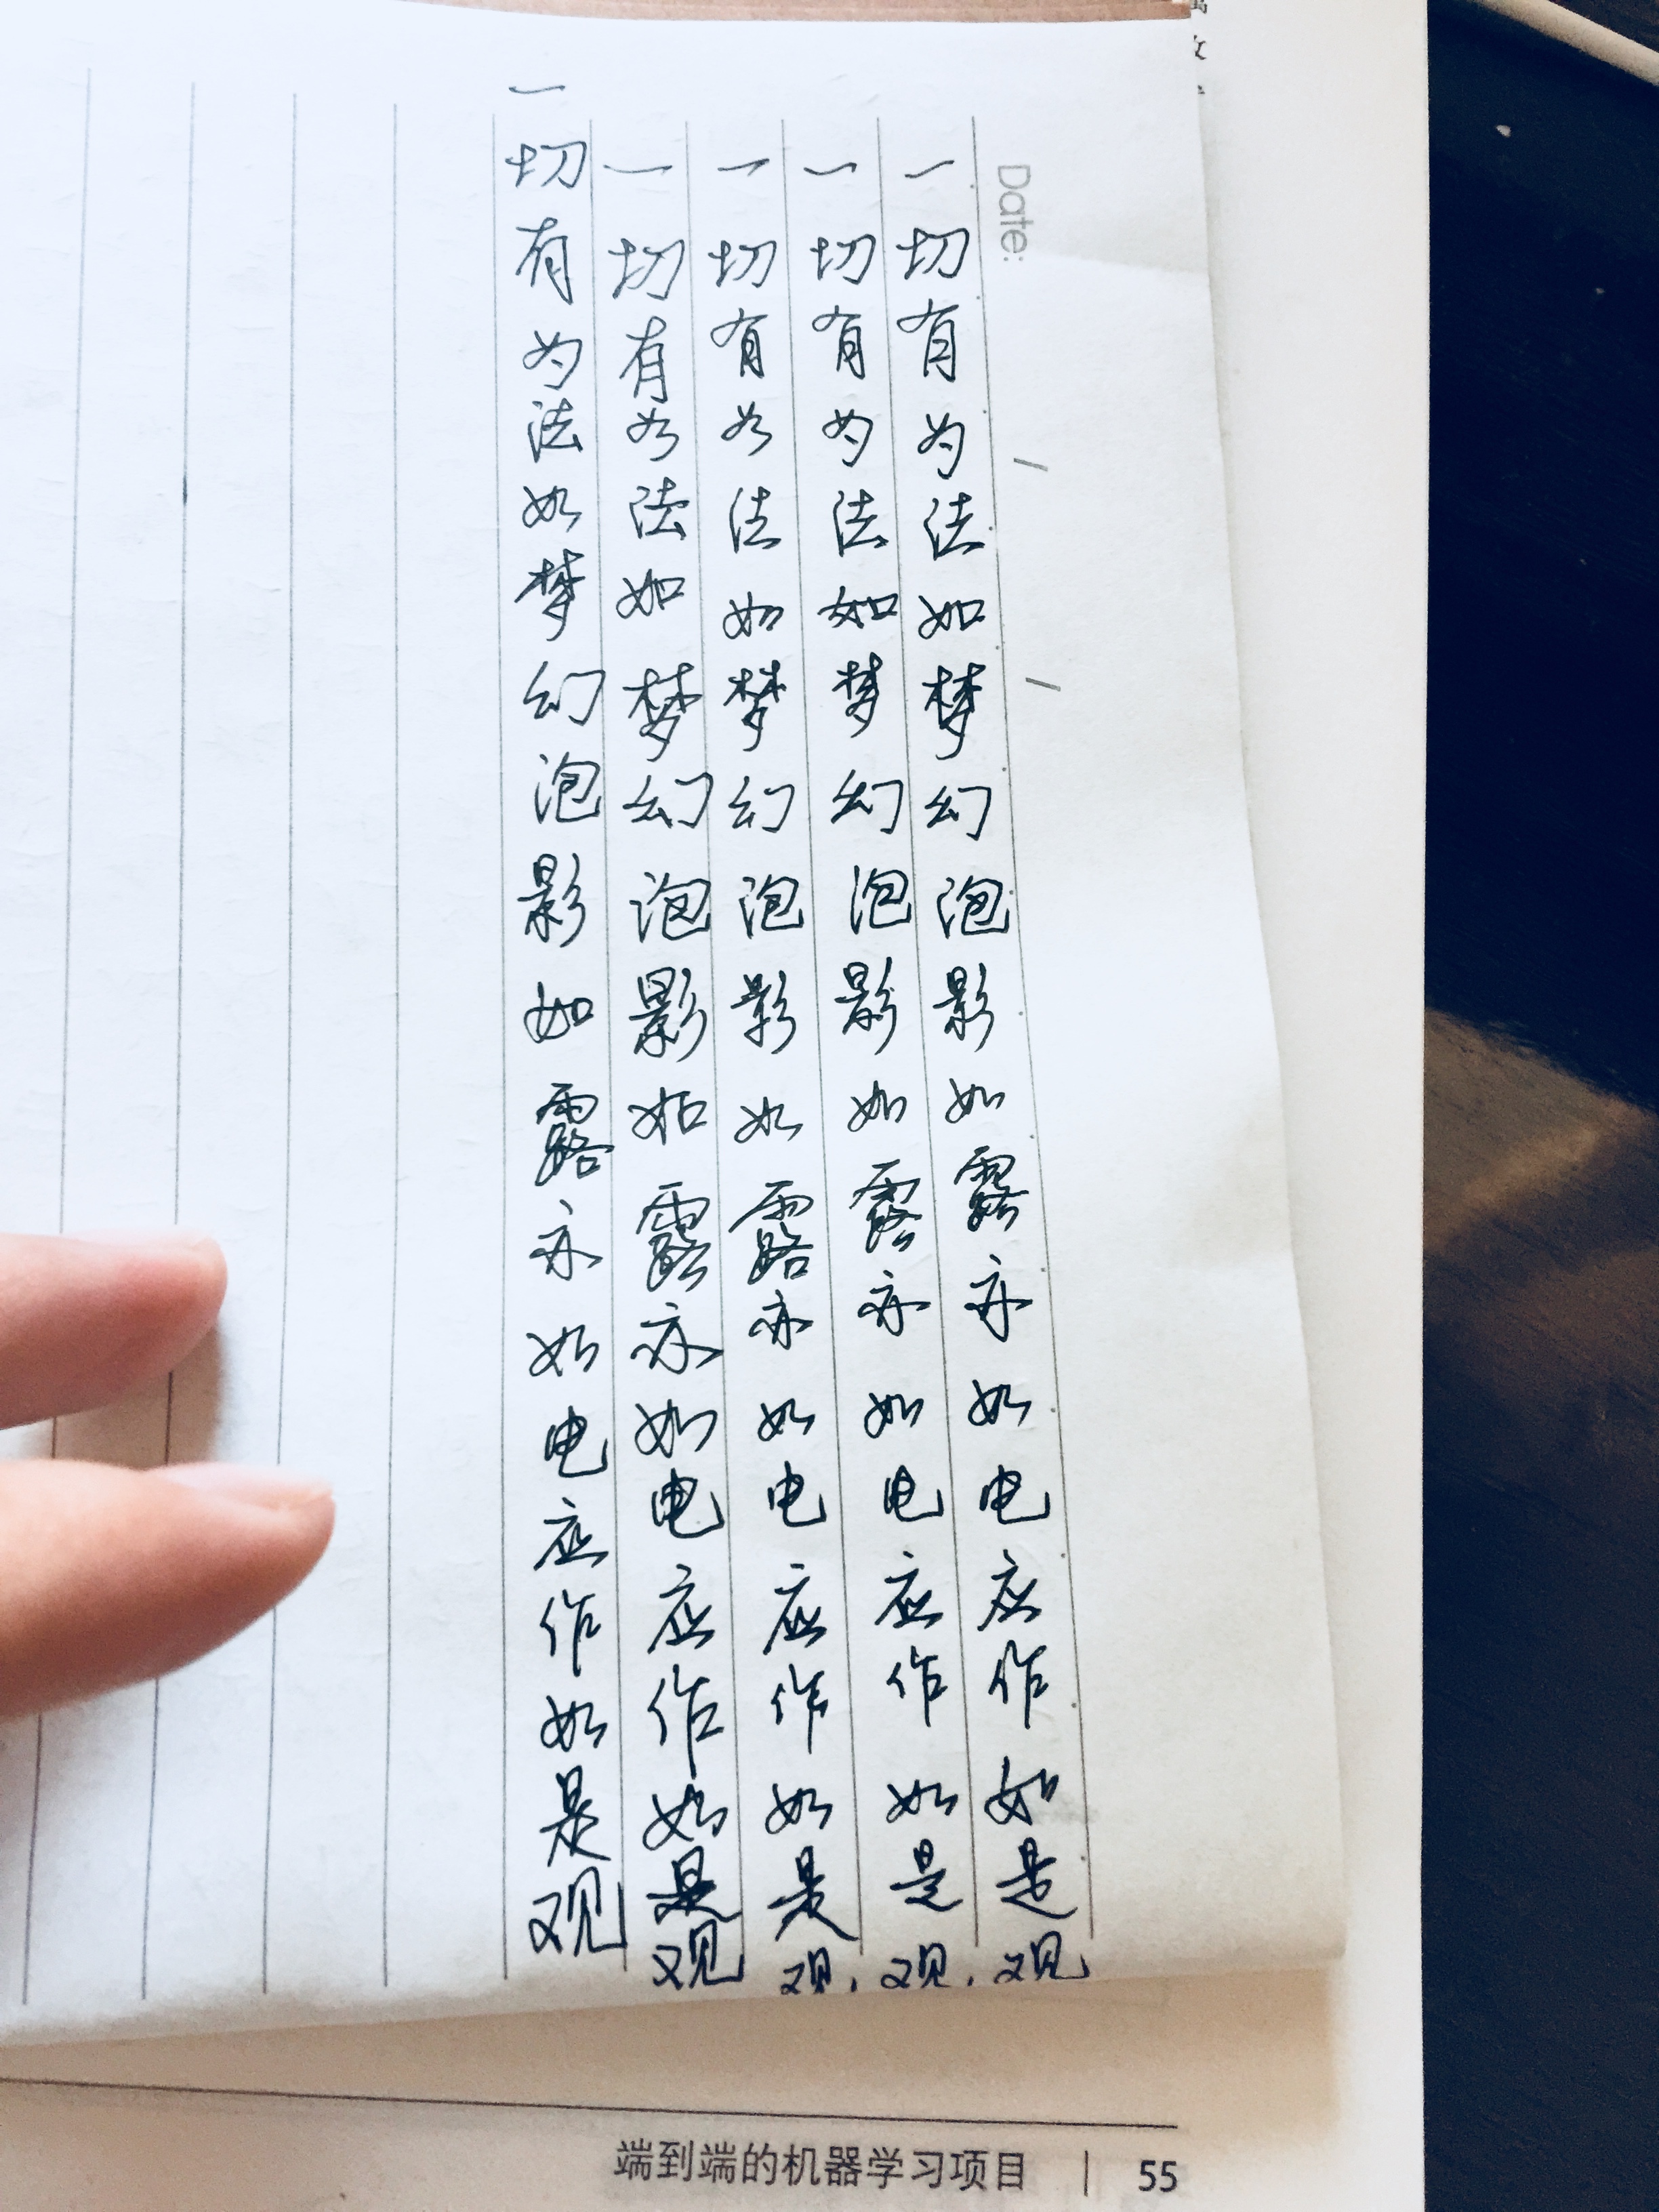 Date:
一切有为法如梦幻泡影如露亦如电应作如是观
一切有为法如梦幻泡影如露亦如电应作如是观.
一切有为法如梦幻泡影如露亦如电应作如是观.
一切有为法如梦幻泡影如露亦如电应作如是观
一切有为法如梦幻泡影如露亦如电应作如是观
端到端的机器学习项目 | 55